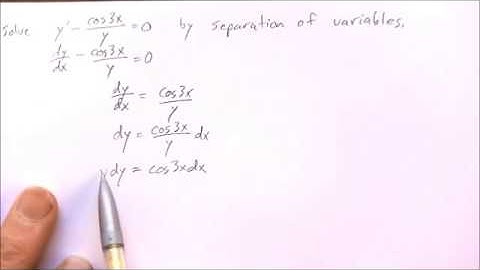 Solve y' - cos3x/y = 0 by separation of variables.
dy/dx - cos3x/y = 0
dy/dx = cos3x/y
dy = cos3x/y dx
ydy = cos3xdx